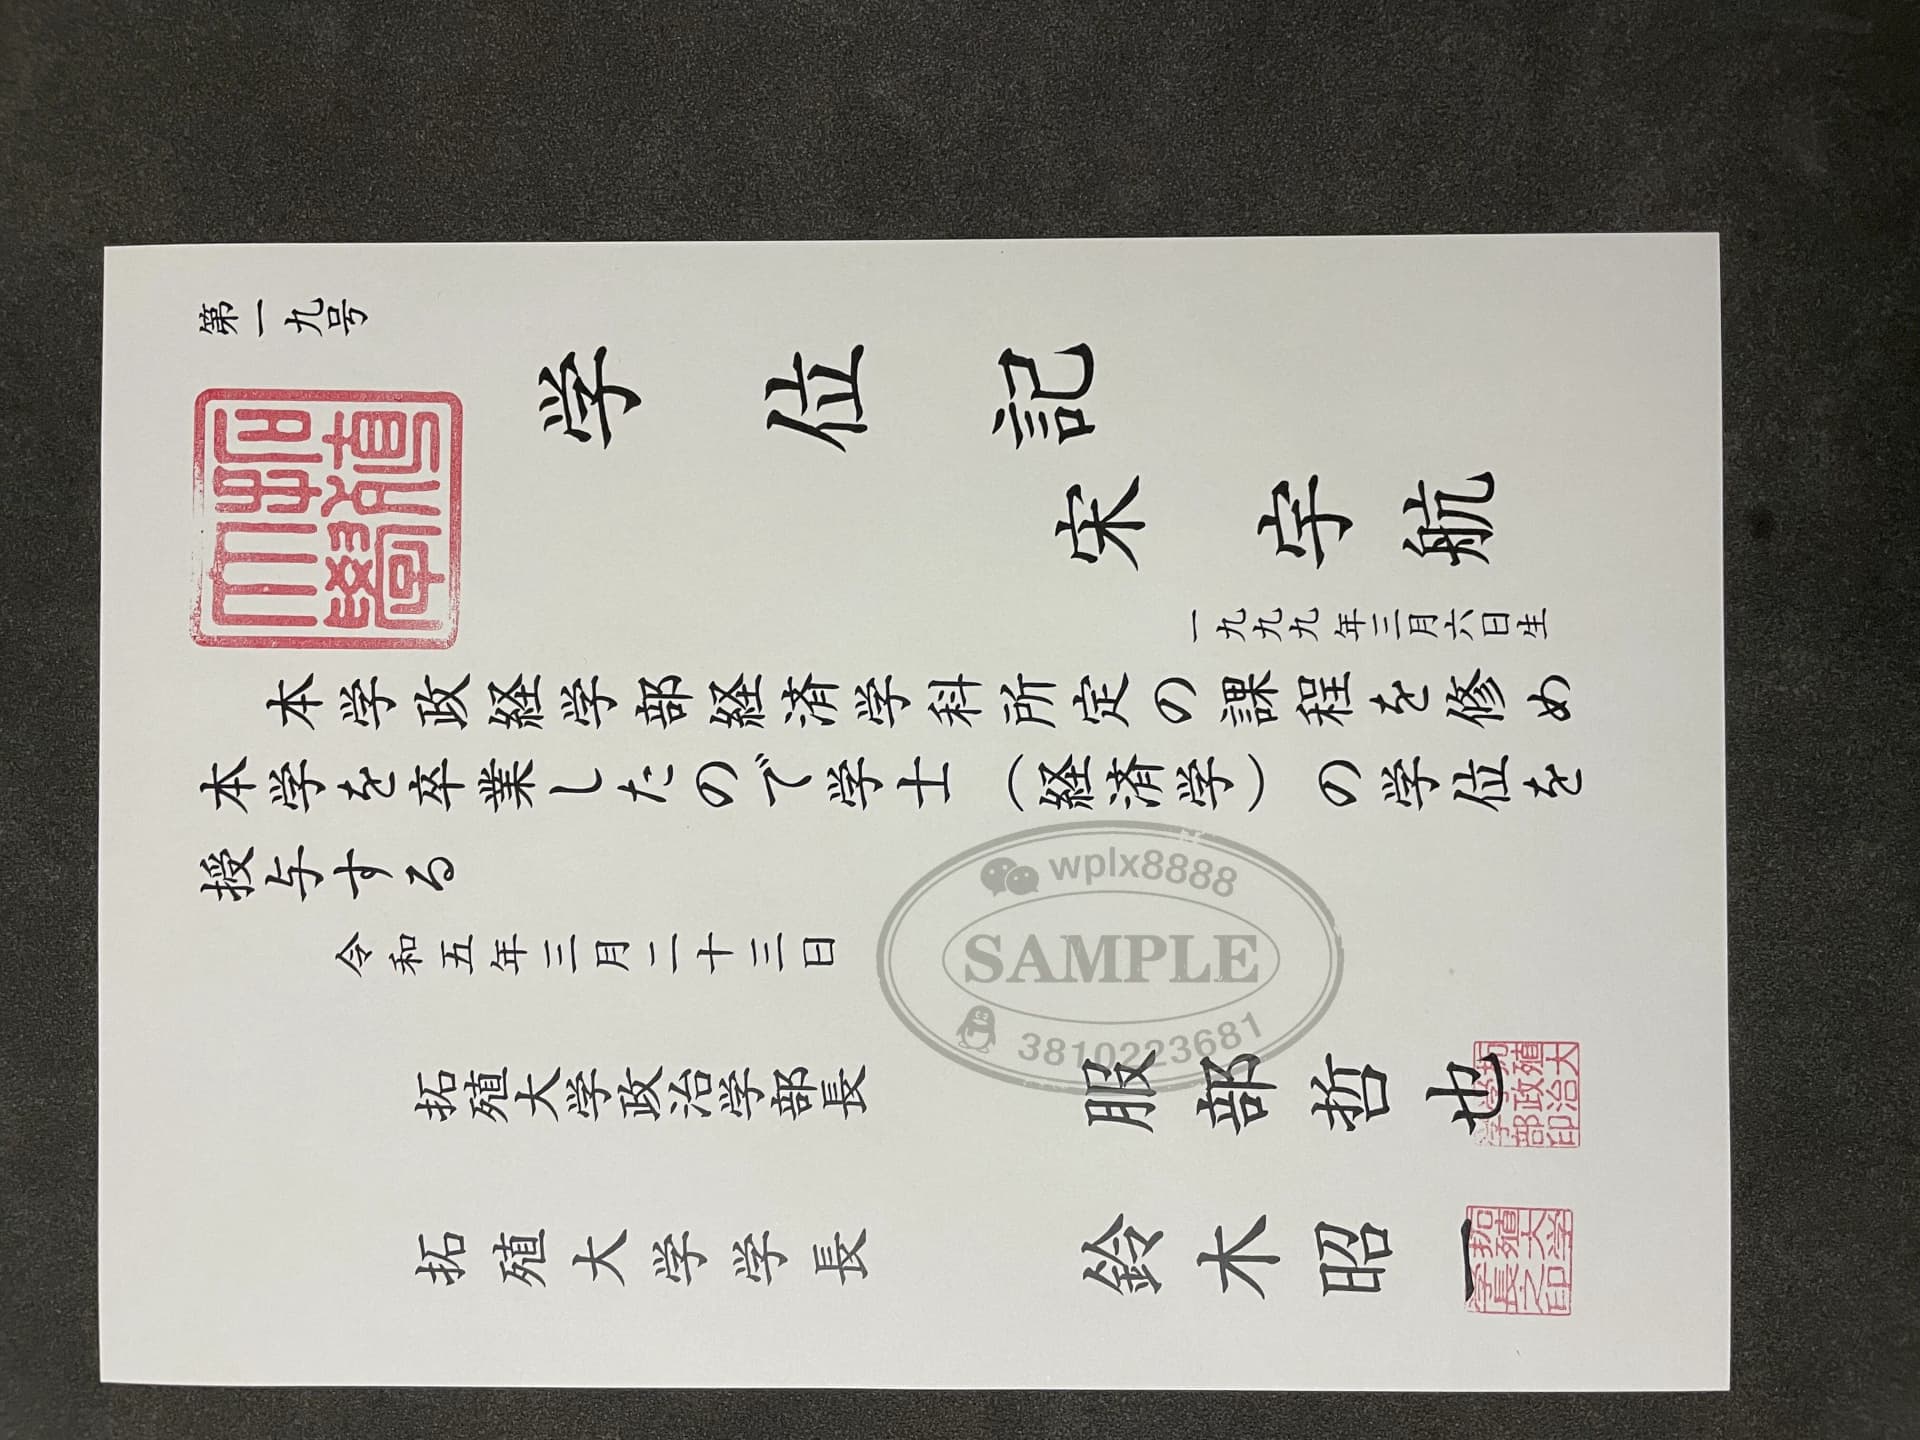 第一九号
拓殖大學
学位記
宋宇航
一九九九年三月六日生
本学政経学部経済学科所定の課程を修め
本学を卒業したので学士（経済学）の学位を
授与する
令和五年三月二十三日
拓殖大学政治学部長 服部哲也
拓殖大学政治学部印
拓殖大学学長 鈴木昭一
拓殖大学学長之印
wplx8888
SAMPLE
3810223681